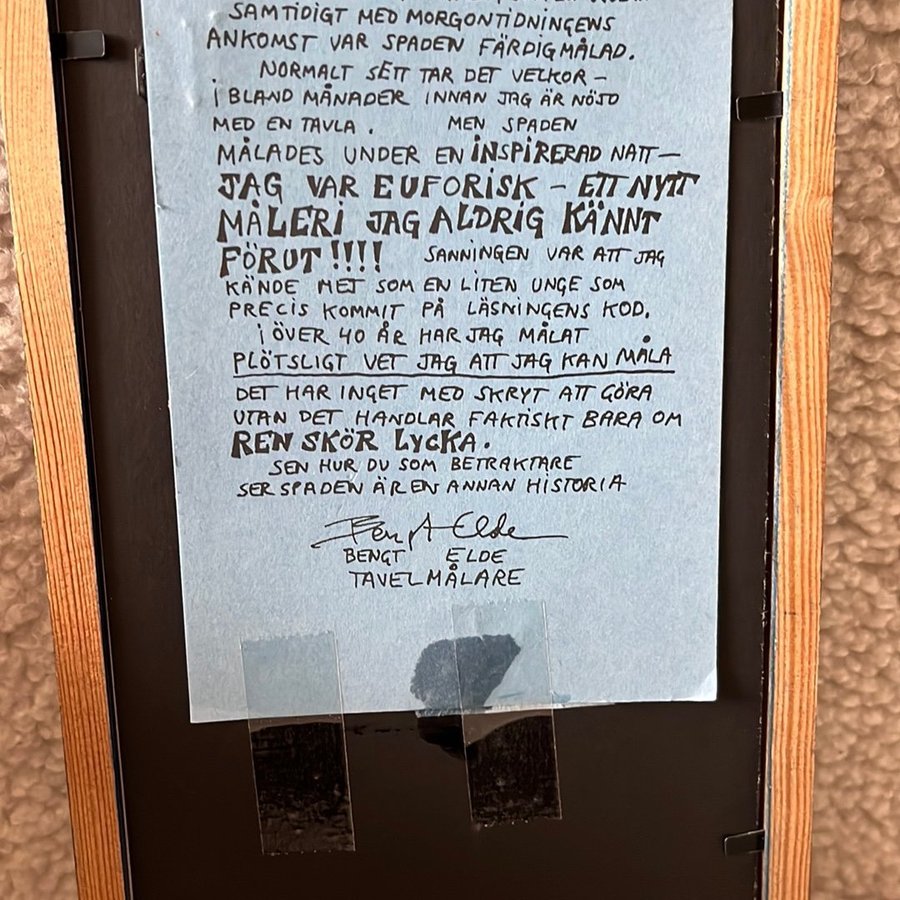 SAMTIDIGT MED MORGONTIDNINGENS
ANKOMST VAR SPADEN FÄRDIGMÅLAD.
NORMALT SETT TAR DET VECKOR –
IBLAND MÅNADER INNAN JAG ÄR NÖJD
MED EN TAVLA. MEN SPADEN
MÅLADES UNDER EN INSPIRERAD NATT –
JAG VAR EUFORISK – ETT NYTT
MÅLERI JAG ALDRIG KÄNNT
FÖRUT !!!! SANNINGEN VAR ATT JAG
KÄNDE MET SOM EN LITEN UNGE SOM
PRECIS KOMMIT PÅ LÄSNINGENS KOD.
I ÖVER 40 ÅR HAR JAG MÅLAT
PLÖTSLIGT VET JAG ATT JAG KAN MÅLA
DET HAR INGET MED SKRYT ATT GÖRA
UTAN DET HANDLAR FAKTISKT BARA OM
REN SKÖR LYCKA.
SEN HUR DU SOM BETRAKTARE
SER SPADEN ÄR EN ANNAN HISTORIA
Bengt Elde
BENGT ELDE
TAVELMÅLARE